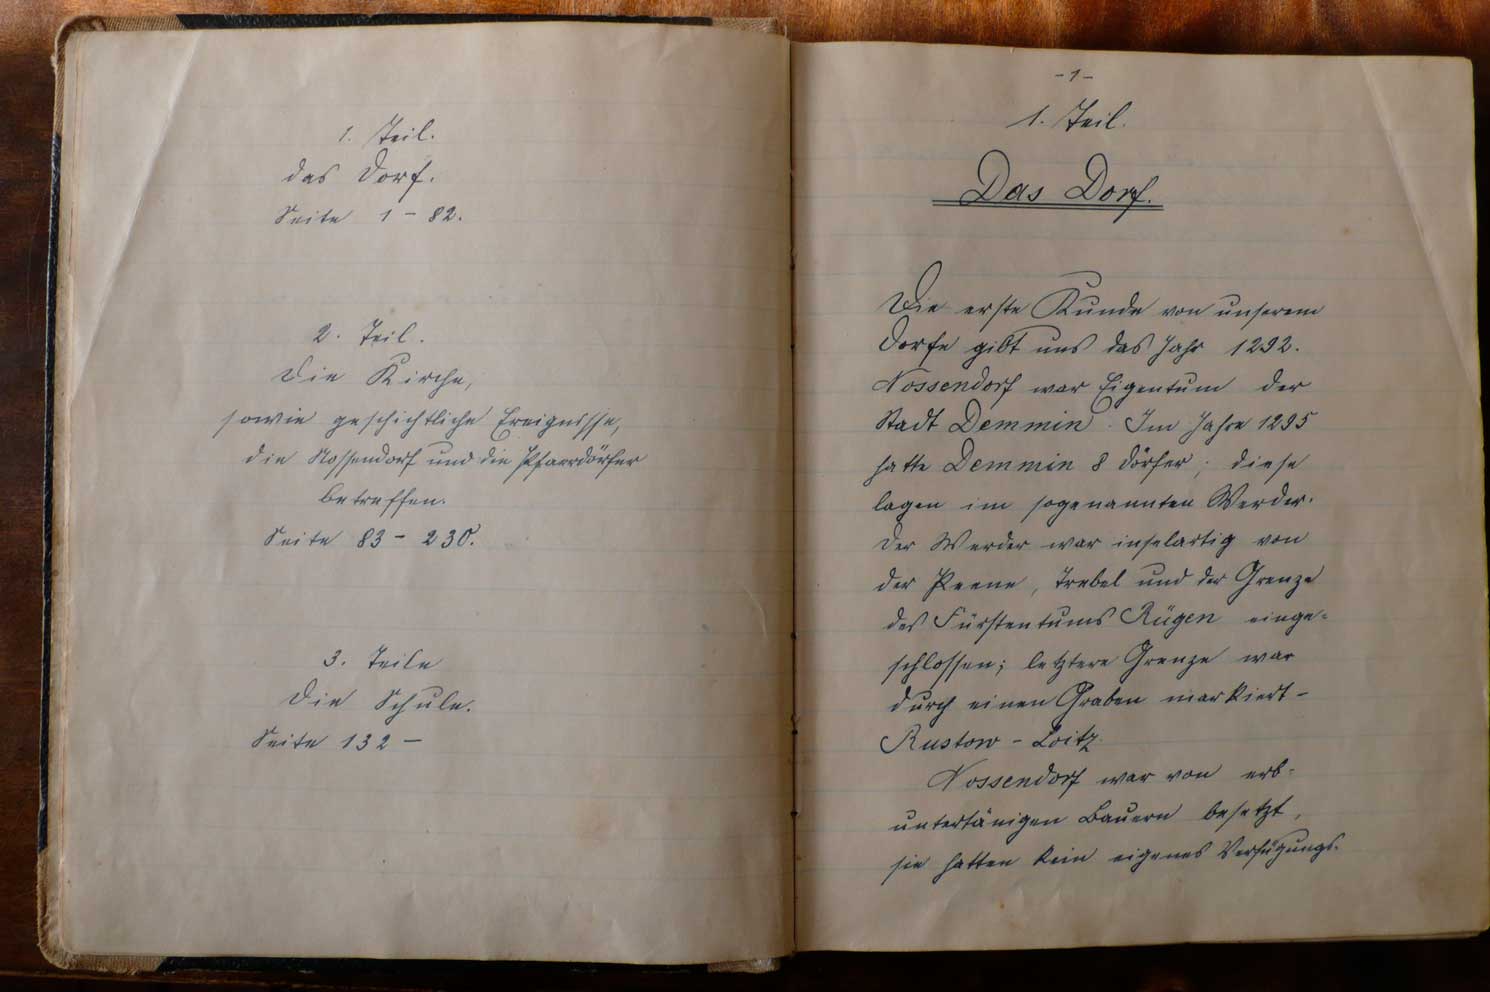 1. Teil.
das Dorf.
Seite 1 – 82.
2. Teil.
Die Kirche,
sowie geschichtliche Ereignisse,
die Nossendorf und die Pfarrdörfer
betreffen.
Seite 83 – 230.
3. Teile
Die Schule.
Seite 132 –
- 1 -
1. Teil.
Das Dorf.
Die erste Kunde von unserem
Dorfe gibt uns das Jahr 1292.
Nossendorf war Eigentum der
Stadt Demmin. Im Jahre 1295
hatte Demmin 8 Dörfer; diese
lagen im sogenannten Werder.
Der Werder war inselartig von
der Peene, Trebel und der Grenze
des Fürstentums Rügen einge-
schlossen; letztere Grenze war
durch einen Graben markiert –
Rustow – Loitz.
Nossendorf war von erb-
untertänigen Bauern besetzt,
sie hatten kein eigenes Verfügungs-